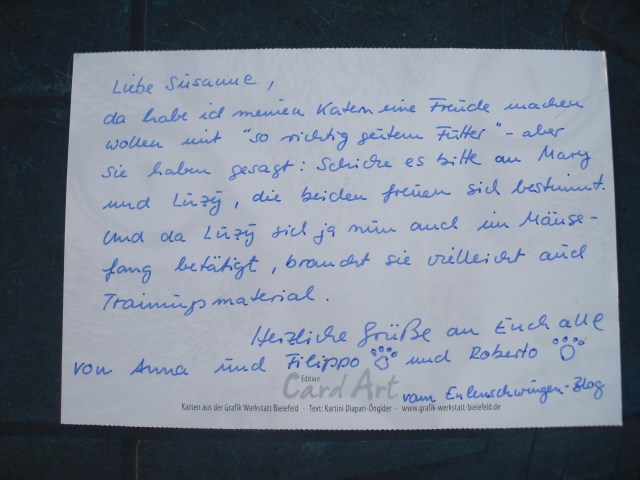 Liebe Susanne,
da habe ich meinen Katern eine Freude machen
wollen mit "so richtig gutem Futter" - aber
sie haben gesagt: Schicke es bitte an Mary
und Luzÿ, die beiden freuen sich bestimmt.
Und da Luzÿ sich ja nun auch im Mäuse-
fang betätigt, braucht sie vielleicht auch
Trainingsmaterial.
Herzliche Grüße an Euch alle
von Anna und Filippo und Roberto
vom Eulenschwingen-Blog
Edition
Card Art
Karten aus der Grafik Werkstatt Bielefeld · Text: Kartini Diapari-Öngider · www.grafik-werkstatt-bielefeld.de